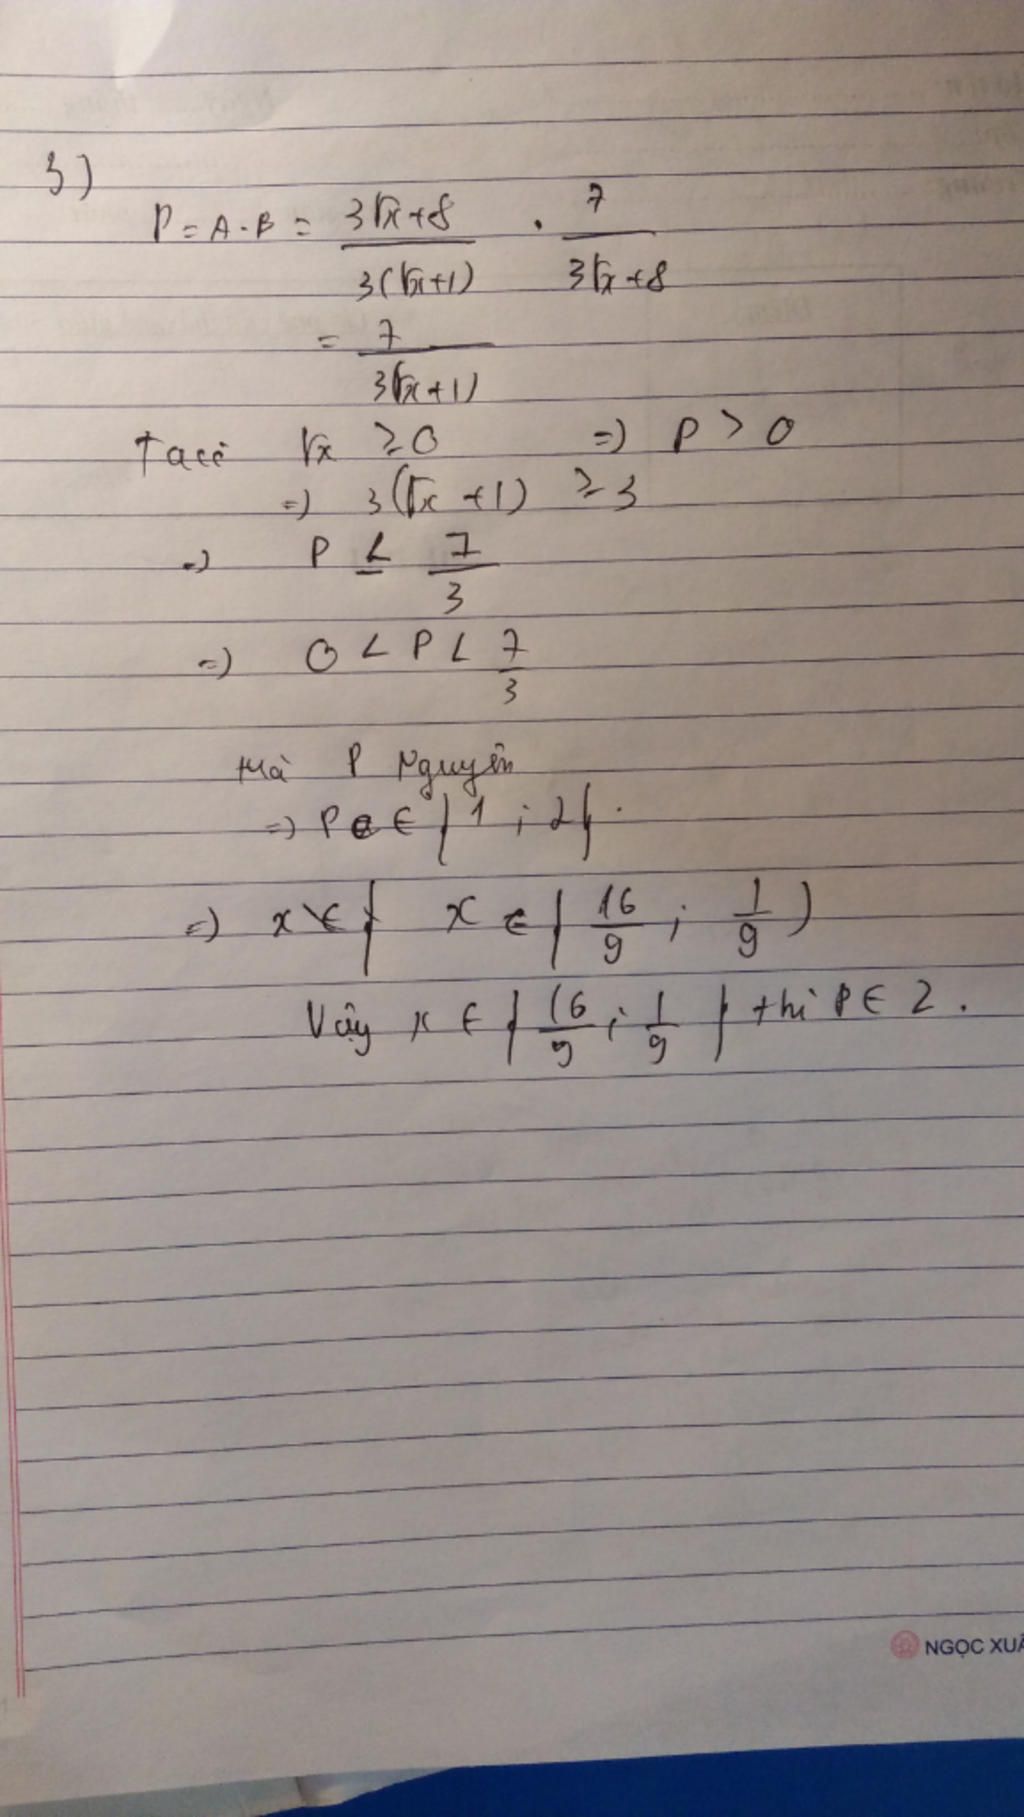 3)
P = A . B = 3√x+8 / 3(√x+1) . 7 / 3√x+8
= 7 / 3(√x+1)
Ta có √x ≥ 0 => P > 0
=> 3(√x +1) ≥ 3
=> P ≤ 7/3
=> 0 < P < 7/3
Mà P Nguyên
=> P ∈ {1 ; 2}.
=> x ∈ { x ∈ { 16/9 ; 1/9 )
Vậy x ∈ { 16/9 ; 1/9 } thì P ∈ Z .
NGỌC XUÂ